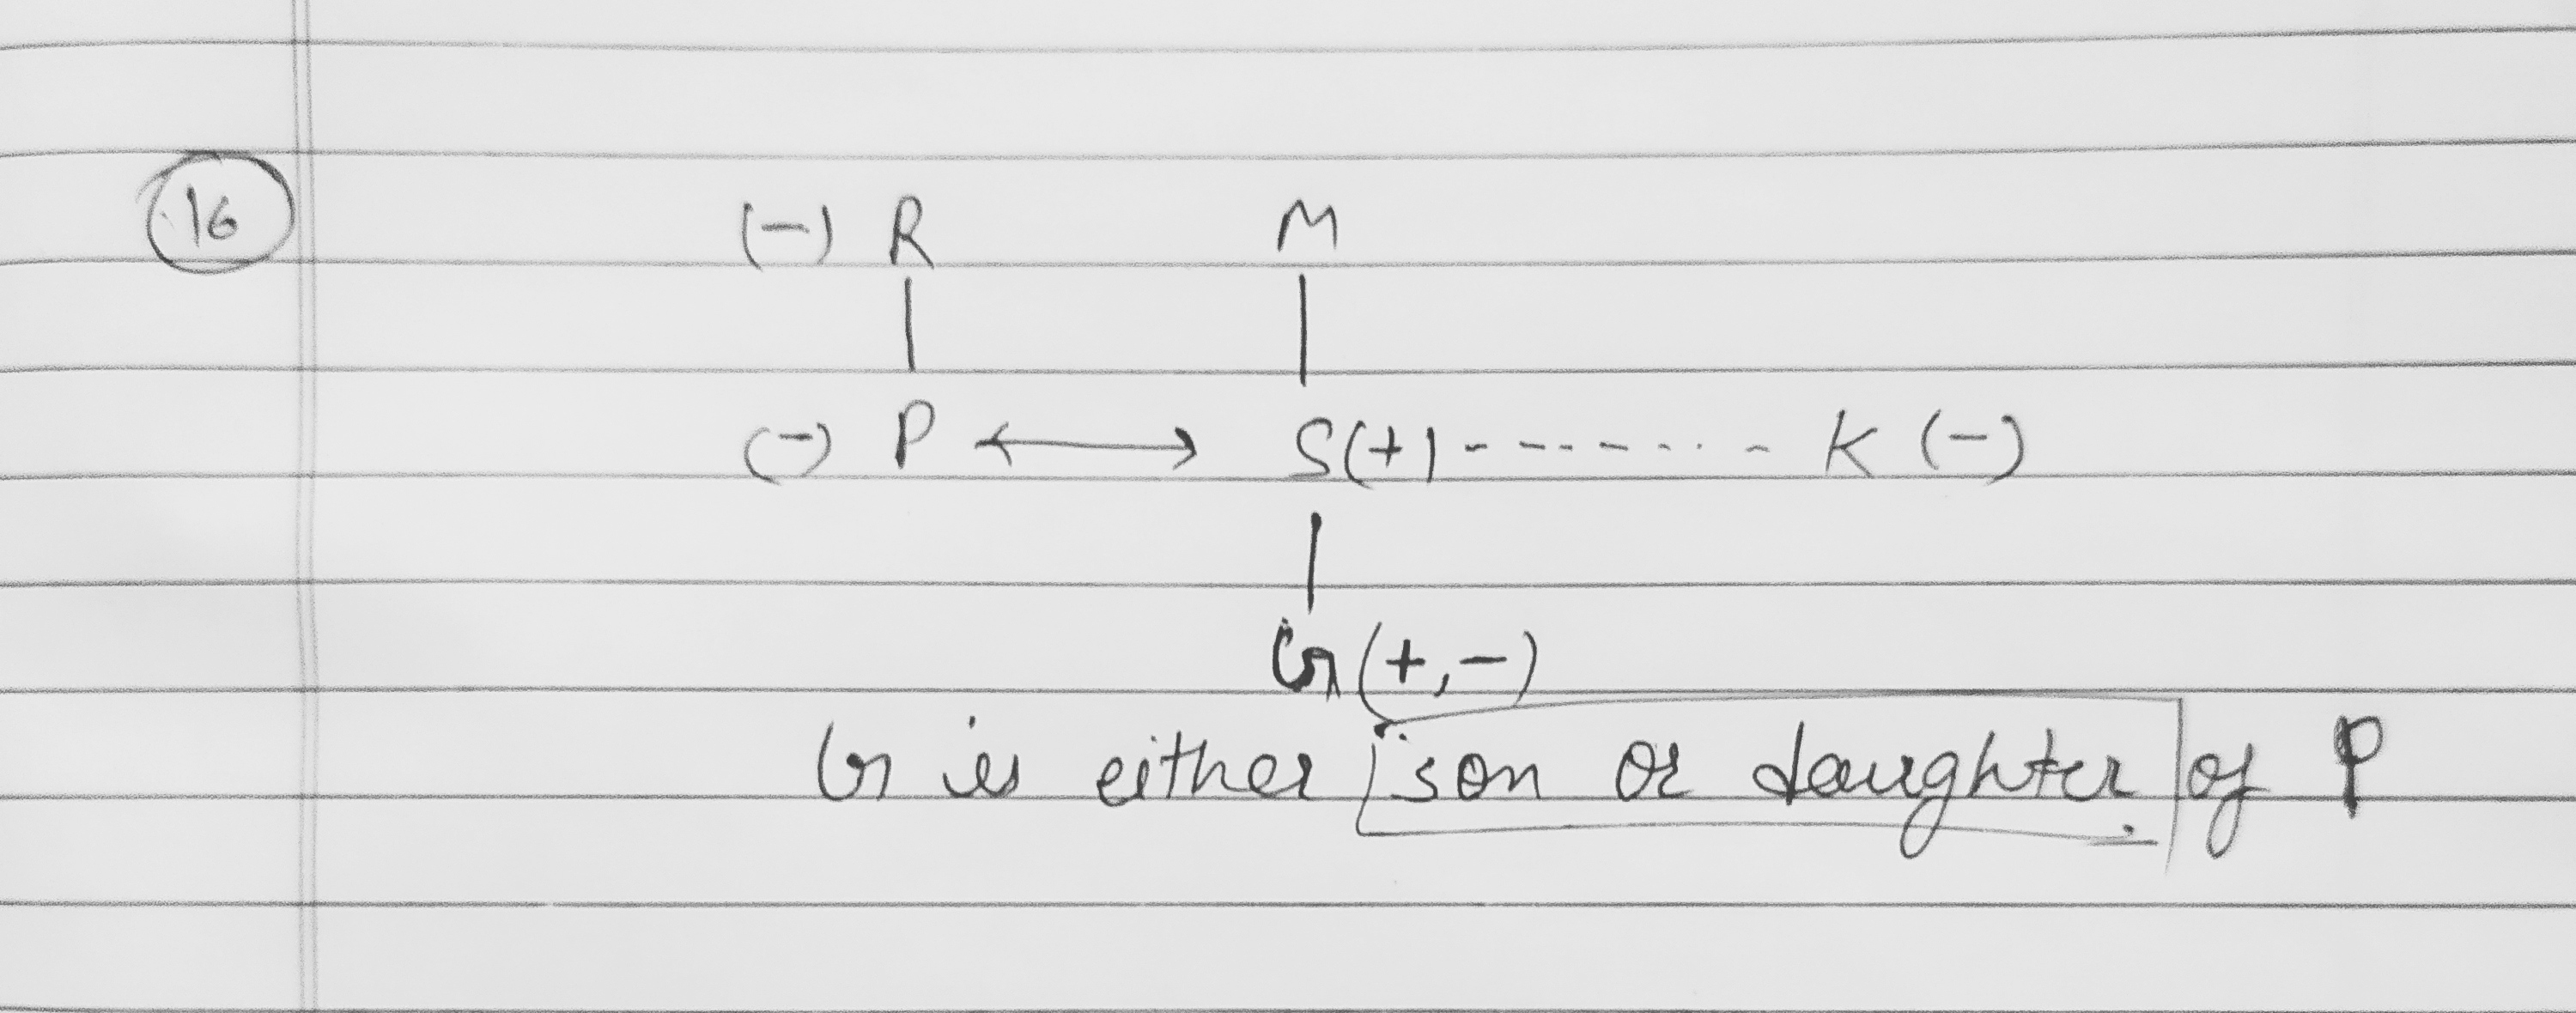 16
(-) R M
(-) P ⟷ S(+) ------- K (-)
G(+,-)
G is either son or daughter. of P